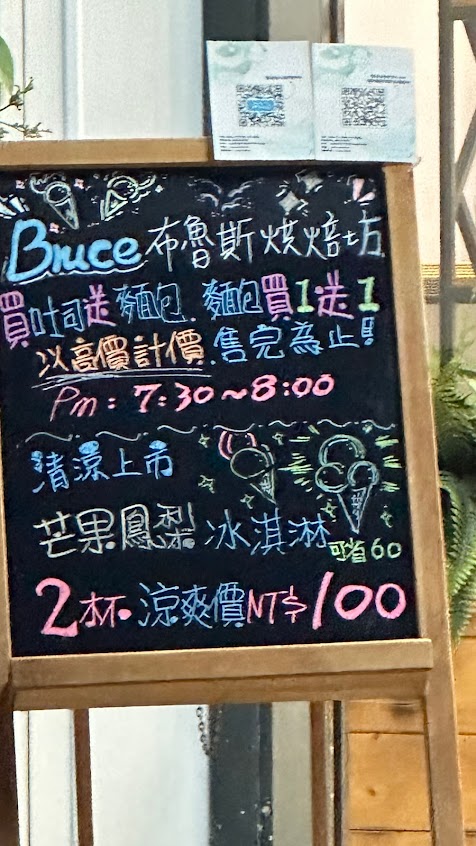 Bruce 布魯斯烘焙坊
買吐司送麵包. 麵包買1送1
以高價計價. 售完為止!
Pm: 7:30~8:00
清涼上市
芒果鳳梨 冰淇淋 可省60
2杯. 涼爽價NT$100